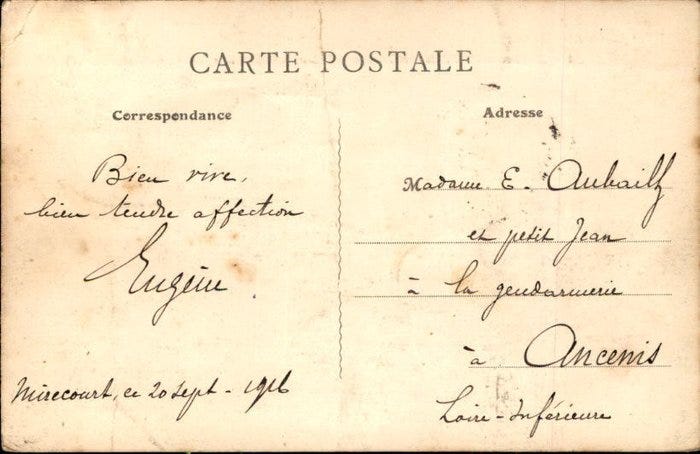 CARTE POSTALE
Correspondance
Bien vive,
bien tendre affection
Eugène
Mirecourt, ce 20 Sept - 1916
Adresse
Madame E. Aubailly
et petit Jean
à la gendarmerie
à Ancenis
Loire-Inférieure